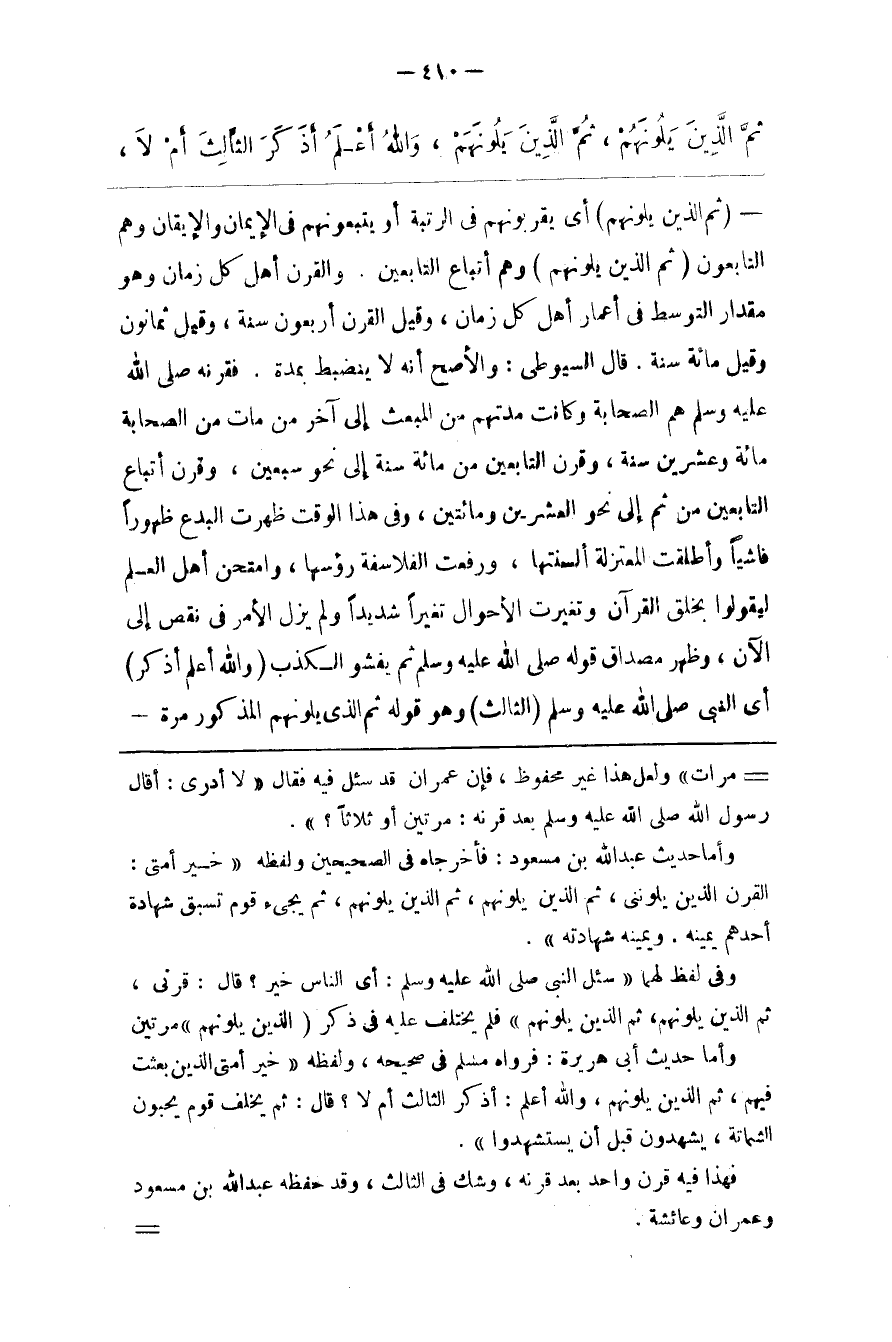 — ٤١٠ —
ثُمَّ الَّذِينَ يَلُونَهُمْ ، ثُمَّ الَّذِينَ يَلُونَهُمْ ، وَاللهُ أَعْـلَمُ أَذَكَرَ الثَّالِثَ أَمْ لاَ ،
— (ثم الذين يلونهم) أى يقربونهم فى الرتبة أو يتبعونهم فى الإيمان والإيقان وهم
التابعون ( ثم الذين يلونهم ) وهم أتباع التابعين . والقرن أهل كل زمان وهو
مقدار التوسط فى أعمار أهل كل زمان ، وقيل القرن أربعون سنة ، وقيل ثمانون
وقيل مائة سنة . قال السيوطى : والأصح أنه لا ينضبط بمدة . فقرنه صلى الله
عليه وسلم هم الصحابة وكانت مدتهم من المبعث إلى آخر من مات من الصحابة
مائة وعشرين سنة ، وقرن التابعين من مائة سنة إلى نحو سبعين ، وقرن أتباع
التابعين من ثم إلى نحو العشرين ومائتين ، وفى هذا الوقت ظهرت البدع ظهوراً
فاشياً وأطلقت المعتزلة ألسنتها ، ورفعت الفلاسفة رؤسها ، وامتحن أهل العـلم
ليقولوا بخلق القرآن وتغيرت الأحوال تغيراً شديداً ولم يزل الأمر فى نقص إلى
الآن ، وظهر مصداق قوله صلى الله عليه وسلم ثم يفشو الـكذب (والله أعلم أذكر)
أى النبى صلى الله عليه وسلم (الثالث) وهو قوله ثم الذى يلونهم المذكور مرة —
== مرات» ولعل هذا غير محفوظ ، فإن عمران قد سئل فيه فقال « لا أدرى : أقال
رسول الله صلى الله عليه وسلم بعد قرنه : مرتين أو ثلاثاً ؟ » .
وأما حديث عبدالله بن مسعود : فأخرجاه فى الصحيحين ولفظه « خـير أمتى :
القرن الذين يلوننى ، ثم الذين يلونهم ، ثم الذين يلونهم ، ثم يجىء قوم تسبق شهادة
أحدهم يمينه . ويمينه شهادته » .
وفى لفظ لهما « سئل النبى صلى الله عليه وسلم : أى الناس خير ؟ قال : قرنى ،
ثم الذين يلونهم، ثم الذين يلونهم » فلم يختلف عليه فى ذكر ( الذين يلونهم » مرتين
وأما حديث أبى هريرة : فرواه مسلم فى صحيحه ، ولفظه « خير أمتى الذين بعثت
فيهم ، ثم الذين يلونهم ، والله أعلم : أذكر الثالث أم لا ؟ قال : ثم يخلف قوم يحبون
الشماتة ، يشهدون قبل أن يستشهدوا » .
فهذا فيه قرن واحد بعد قرنه ، وشك فى الثالث ، وقد حفظه عبدالله بن مسعود
وعمران وعائشة . ==